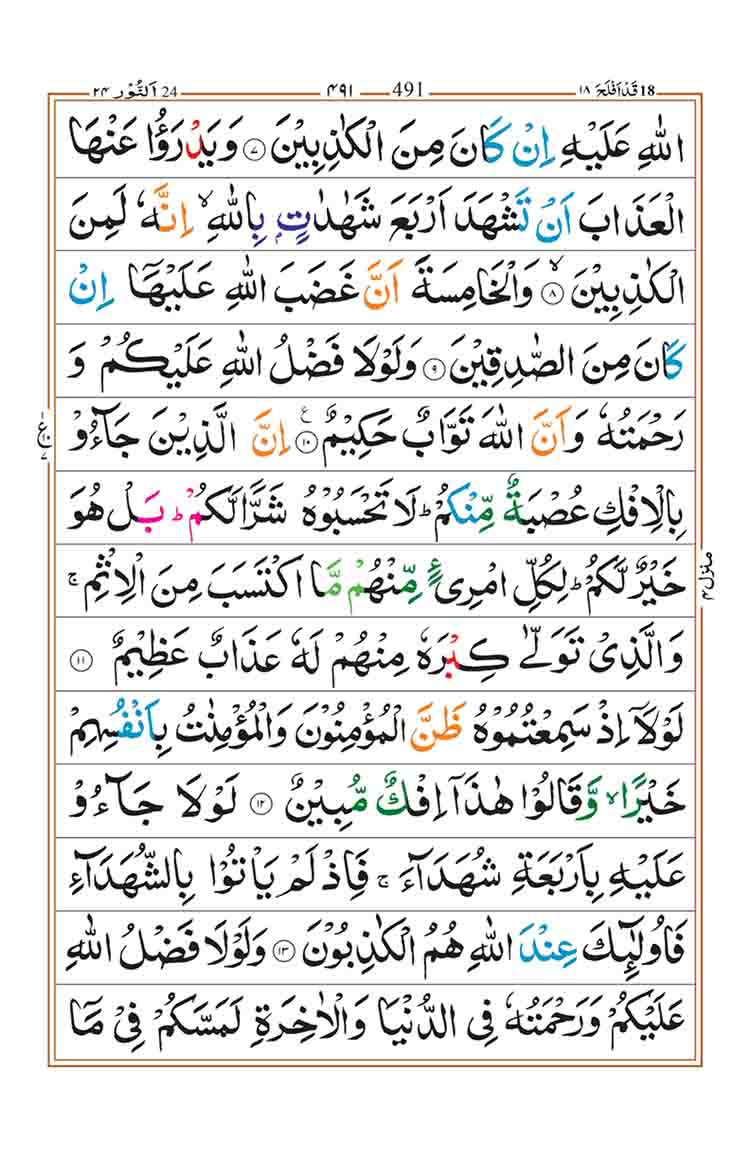 18 قَدْ اَفْلَحَ ۱۸ 491 ۴۹۱ 24 اَلنُّوْر ۲۴
اللّٰهِ عَلَيْهِ اِنْ كَانَ مِنَ الْكٰذِبِيْنَ ۷ وَيَدْرَؤُا عَنْهَا
الْعَذَابَ اَنْ تَشْهَدَ اَرْبَعَ شَهٰدٰتٍۭ بِاللّٰهِ ۙ اِنَّهٗ لَمِنَ
الْكٰذِبِيْنَ ۙ ۸ وَالْخَامِسَةَ اَنَّ غَضَبَ اللّٰهِ عَلَيْهَاۤ اِنْ
كَانَ مِنَ الصّٰدِقِيْنَ ۹ وَلَوْلَا فَضْلُ اللّٰهِ عَلَيْكُمْ وَ
رَحْمَتُهٗ وَاَنَّ اللّٰهَ تَوَّابٌ حَكِيْمٌ ۱۰ ع اِنَّ الَّذِيْنَ جَآءُوْ
ع
بِالْاِفْكِ عُصْبَةٌ مِّنْكُمْ ؕ لَا تَحْسَبُوْهُ شَرًّا لَّكُمْ ؕ بَلْ هُوَ
خَيْرٌ لَّكُمْ ؕ لِكُلِّ امْرِئٍ مِّنْهُمْ مَّا اكْتَسَبَ مِنَ الْاِثْمِ ۚ
منزل ۴
وَالَّذِيْ تَوَلّٰى كِبْرَهٗ مِنْهُمْ لَهٗ عَذَابٌ عَظِيْمٌ ۱۱
لَوْلَاۤ اِذْ سَمِعْتُمُوْهُ ظَنَّ الْمُؤْمِنُوْنَ وَالْمُؤْمِنٰتُ بِاَنْفُسِهِمْ
خَيْرًا ۙ وَّقَالُوْا هٰذَاۤ اِفْكٌ مُّبِيْنٌ ۱۲ لَوْلَا جَآءُوْ
عَلَيْهِ بِاَرْبَعَةِ شُهَدَآءَ ۚ فَاِذْ لَمْ يَاْتُوْا بِالشُّهَدَآءِ
فَاُولٰٓئِكَ عِنْدَ اللّٰهِ هُمُ الْكٰذِبُوْنَ ۱۳ وَلَوْلَا فَضْلُ اللّٰهِ
عَلَيْكُمْ وَرَحْمَتُهٗ فِي الدُّنْيَا وَالْاٰخِرَةِ لَمَسَّكُمْ فِيْ مَاۤ